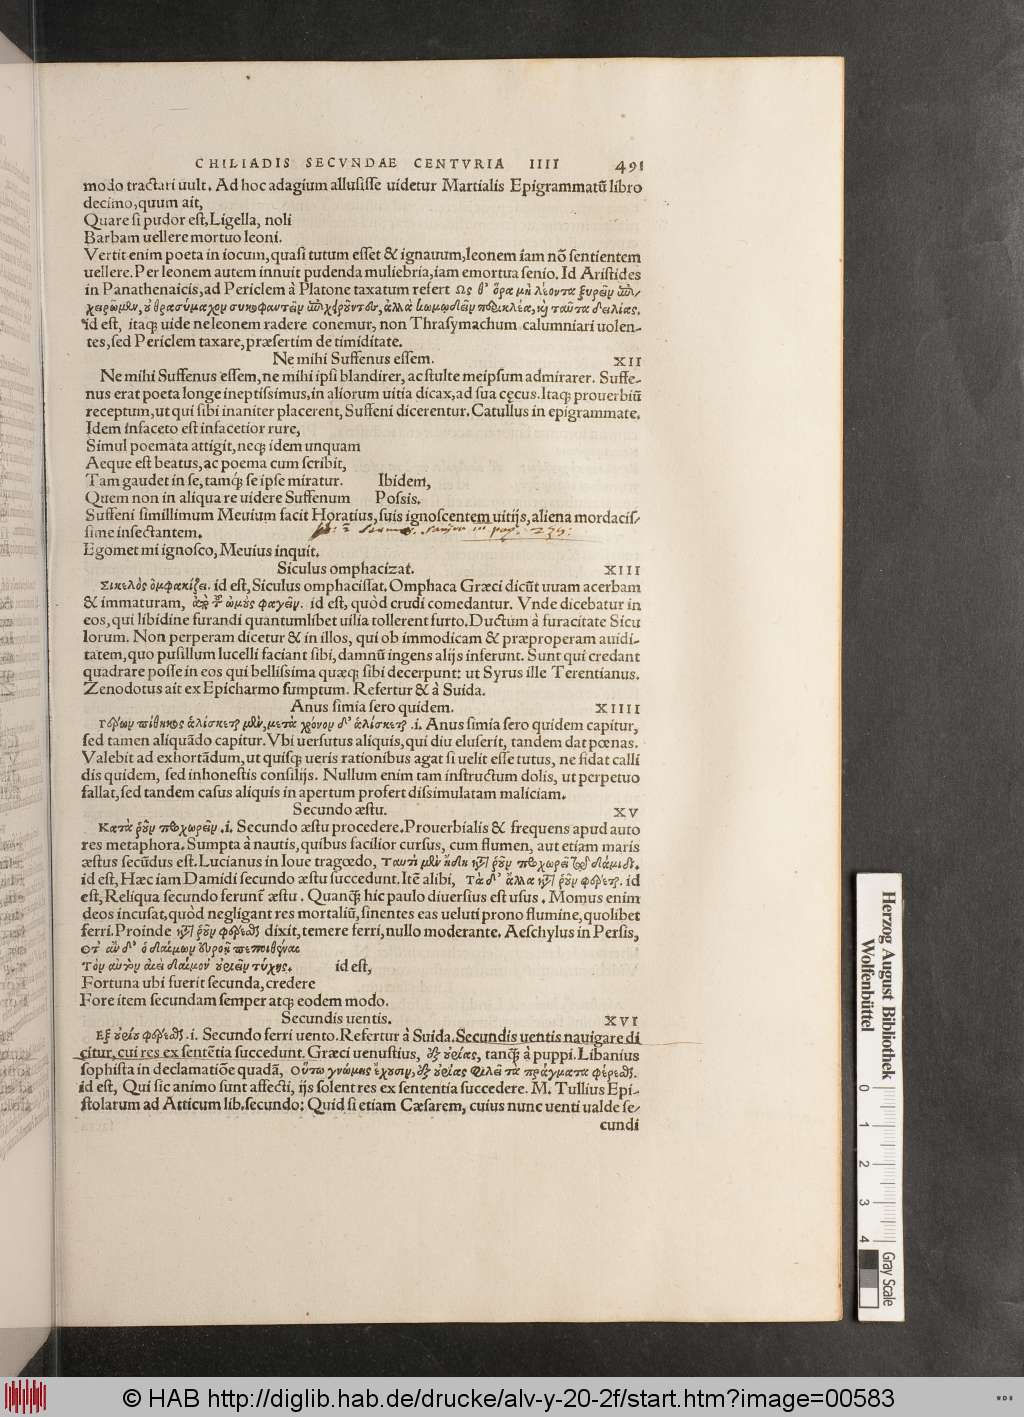 CHILIADIS SECVNDAE CENTVRIA IIII 491
modo tractari uult. Ad hoc adagium allusisse uidetur Martialis Epigrammatũ libro
decimo, quum ait,
Quare si pudor est, Ligella, noli
Barbam uellere mortuo leoni.
Vertit enim poeta in iocum, quasi tutum esset & ignauum, leonem iam nõ sentientem
uellere. Per leonem autem innuit pudenda muliebria, iam emortua senio. Id Aristides
in Panathenaicis, ad Periclem à Platone taxatum refert Ως θ' ὅρα μὴ λέοντα ξυρεῖν ἐπι/
χειρῶμεν, οὐ θρασύμαχον συκοφαντεῖν ἐπιχειροῦντες, ἀλλὰ κωμῳδεῖν περικλέα, καὶ ταῦτα δειλίας.
id est, itaq; uide ne leonem radere conemur, non Thrasymachum calumniari uolen-
tes, sed Periclem taxare, præsertim de timiditate.
Ne mihi Suffenus essem. XII
Ne mihi Suffenus essem, ne mihi ipsi blandirer, ac stulte meipsum admirarer. Suffe-
nus erat poeta longe ineptissimus, in aliorum uitia dicax, ad sua cęcus. Itaq; prouerbiũ
receptum, ut qui sibi inaniter placerent, Suffeni dicerentur. Catullus in epigrammate.
Idem infaceto est infacetior rure,
Simul poemata attigit, neq; idem unquam
Aeque est beatus, ac poema cum scribit,
Tam gaudet in se, tamq́; se ipse miratur. Ibidem,
Quem non in aliqua re uidere Suffenum Possis.
Suffeni simillimum Meuium facit Horatius, suis ignoscentem uitijs, aliena mordacis/
sime insectantem.
Egomet mi ignosco, Meuius inquit.
Siculus omphacizat. XIII
Σικελὸς ὀμφακίζει. id est, Siculus omphacissat. Omphaca Græci dicũt uuam acerbam
& immaturam, παρὰ τὸ ὠμοὺς φαγεῖν. id est, quòd crudi comedantur. Vnde dicebatur in
eos, qui libidine furandi quantumlibet uilia tollerent furto. Ductum à furacitate Sicu
lorum. Non perperam dicetur & in illos, qui ob immodicam & præproperam auidi-
tatem, quo pusillum lucelli faciant sibi, damnũ ingens alijs inferunt. Sunt qui credant
quadrare posse in eos qui bellissima quæq; sibi decerpunt: ut Syrus ille Terentianus.
Zenodotus ait ex Epicharmo sumptum. Refertur & à Suida.
Anus simia sero quidem. XIIII
Γέρων πίθηκος ἁλίσκεται μὲν, μετὰ χρόνον δ' ἁλίσκεται .i. Anus simia sero quidem capitur,
sed tamen aliquãdo capitur. Vbi uersutus aliquis, qui diu eluserit, tandem dat pœnas.
Valebit ad exhortãdum, ut quisq; ueris rationibus agat si uelit esse tutus, ne fidat calli
dis quidem, sed inhonestis consilijs. Nullum enim tam instructum dolis, ut perpetuo
fallat, sed tandem casus aliquis in apertum profert dissimulatam maliciam.
Secundo æstu. XV
Κατὰ ῥοῦν προχωρεῖν .i. Secundo æstu procedere. Prouerbialis & frequens apud auto
res metaphora. Sumpta à nautis, quibus facilior cursus, cum flumen, aut etiam maris
æstus secũdus est. Lucianus in Ioue tragœdo, Ταυτὶ μὲν ἤδη κατὰ ῥοῦν προχωρεῖ τῷ δάμιδι.
id est, Hæc iam Damidi secundo æstu succedunt. Itẽ alibi, Τὰ δ' ἄλλα κατὰ ῥοῦν φέρεται. id
est, Reliqua secundo ferunt̃ æstu. Quanq̃ hic paulo diuersius est usus. Momus enim
deos incusat, quòd negligant res mortaliũ, sinentes eas ueluti prono flumine, quolibet
ferri. Proinde κατὰ ῥοῦν φέρεσθαι dixit, temere ferri, nullo moderante. Aeschylus in Persis,
Ὅτ' ἂν δ' ὁ δαίμων εὐροῇ πεποιθέναι
Τὸν αὐτὸν ἀεὶ δαίμον' οὐριεῖν τύχης. id est,
Fortuna ubi fuerit secunda, credere
Fore item secundam semper atq; eodem modo.
Secundis uentis. XVI
Εξ οὐρίων φέρεσθαι .i. Secundo ferri uento. Refertur à Suida. Secundis uentis nauigare di
citur, cui res ex sentẽtia succedunt. Græci uenustius, ἐξ οὐρίας, tanq̃ à puppi. Libanius
sophista in declamatiõe quadã, Οὕτω γνώμης ἔχουσιν, ἐξ οὐρίας φιλεῖ τὰ πράγματα φέρεσθαι.
id est, Qui sic animo sunt affecti, ijs solent res ex sententia succedere. M. Tullius Epi-
stolarum ad Atticum lib. secundo: Quid si etiam Cæsarem, cuius nunc uenti ualde se/
cundi
Herzog August Bibliothek
Wolfenbüttel
0 1 2 3 4
Gray Scale
© HAB http://diglib.hab.de/drucke/alv-y-20-2f/start.htm?image=00583
WDB